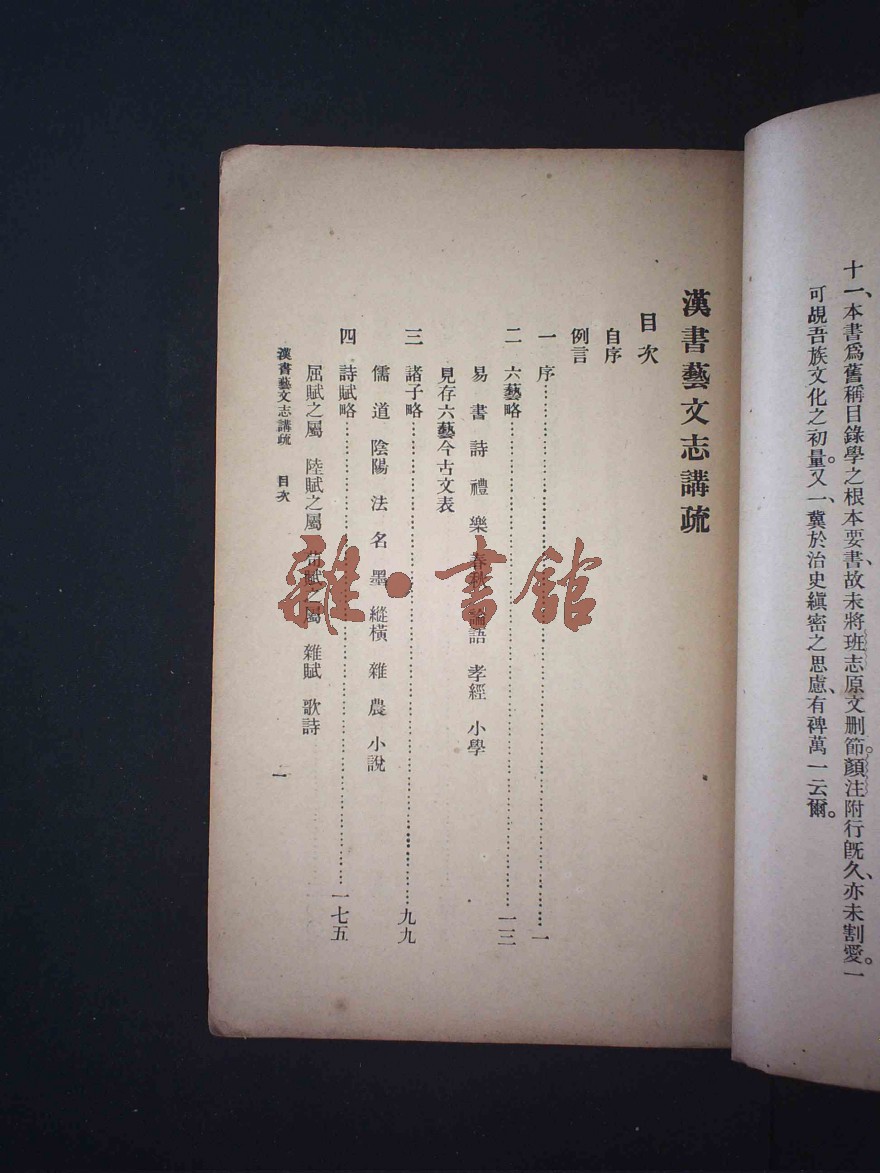 十一、本書爲舊稱目錄學之根本要書、故未將班志原文刪節。顏注附行旣久、亦未割愛。一
可覘吾族文化之初量。又一、冀於治史縝密之思慮、有裨萬一云爾。
漢書藝文志講疏
目次
自序
例言
一 序……一
二 六藝略……一三
易 書 詩 禮 樂 春秋 論語 孝經 小學
見存六藝今古文表
三 諸子略……九九
儒 道 陰陽 法 名 墨 縱橫 雜 農 小說
四 詩賦略……一七五
屈賦之屬 陸賦之屬 荀賦之屬 雜賦 歌詩
漢書藝文志講疏 目次
一
雜·書館